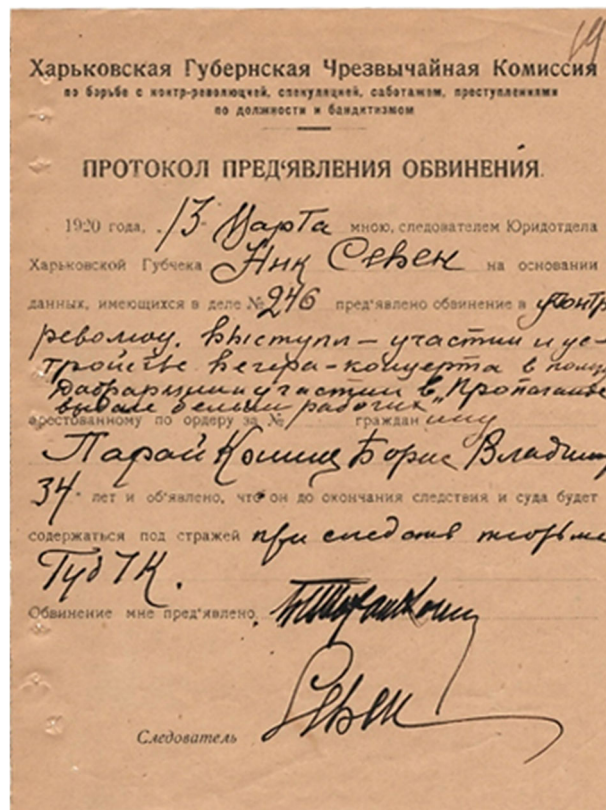 19
Харьковская Губернская Чрезвычайная Комиссия
по борьбе с контр-революцией, спекуляцией, саботажем, преступлениями
по должности и бандитизмом
ПРОТОКОЛ ПРЕД'ЯВЛЕНИЯ ОБВИНЕНИЯ.
1920 года, 13 Марта мною, следователем Юридотдела
Харьковской Губчека Севен на основании
данных, имеющихся в деле № 246 пред'явлено обвинение в контр
револющ. выступл — участии и ус-
тройстве вечера-концерта в
и участии в "Пропаганде
рабочих"
арестованному по ордеру за № граждан ину
Парай Кошиц Борис Владим
34 лет и об'явлено, что он до окончания следствия и суда будет
содержаться под стражей при тюрьме
ГубЧК.
Обвинение мне пред'явлено.
Севен
Следователь